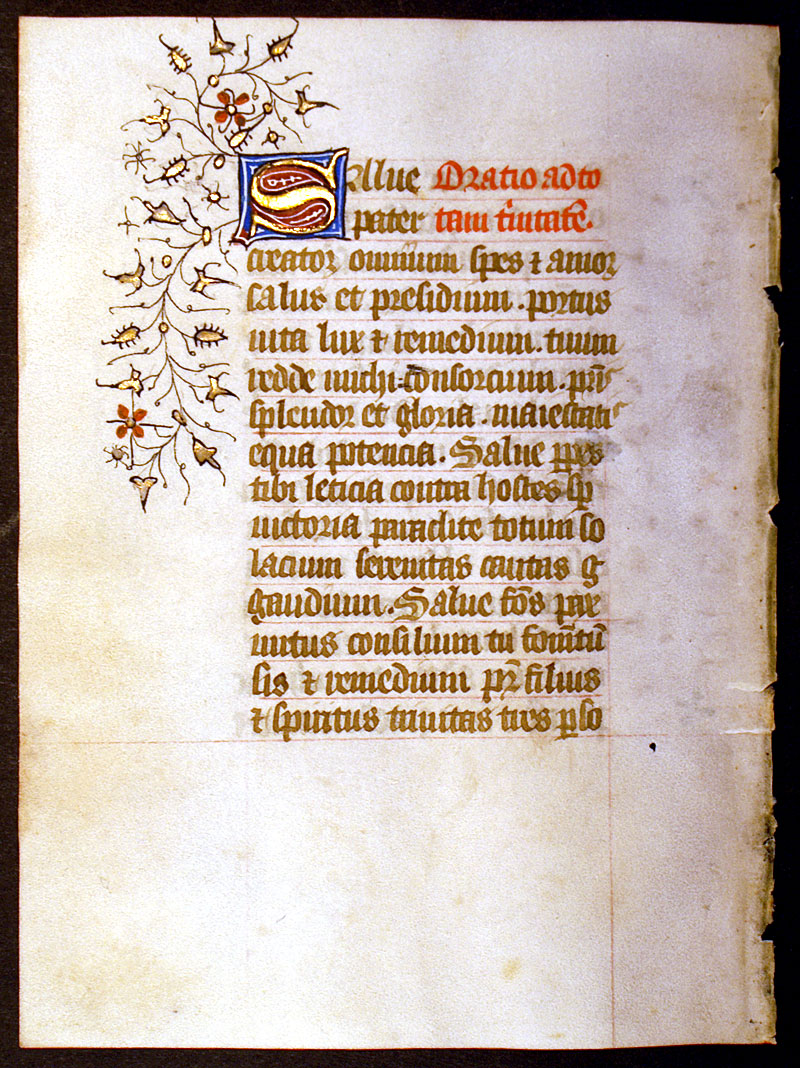 Salue Oratio ad to
pater tam t'nitatē.
creator omnium spes ⁊ amor
salus et presidium . portus
uita lux ⁊ remedium . tuum
redde michi consorcium . pr̄is
splendor et gloria . maiestatis
equa potencia . Salue ꝑpes
tibi leticia contra hostes sp
uictoria paraclite totum so
lacium serenitas caritas g
gaudium . Salue fōs par
uitus consilium tu
lis ⁊ remedium pr̄ filius
⁊ spiritus trinitas tres ꝑso